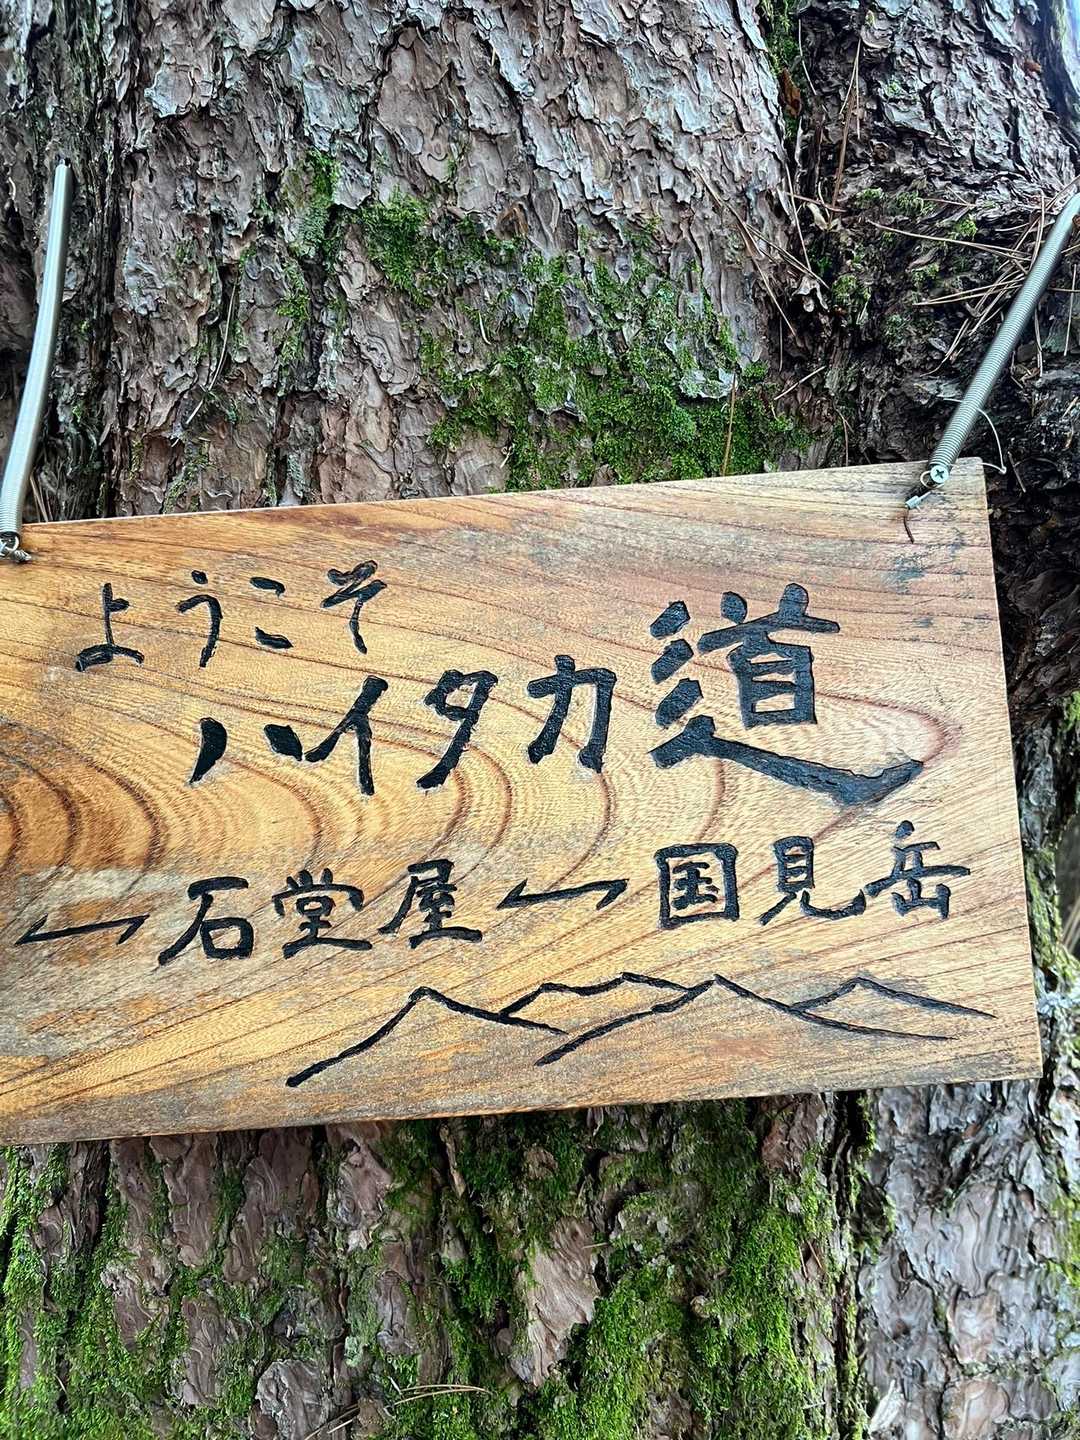 ようこそ
ハイタカ道
←石堂屋←国見岳